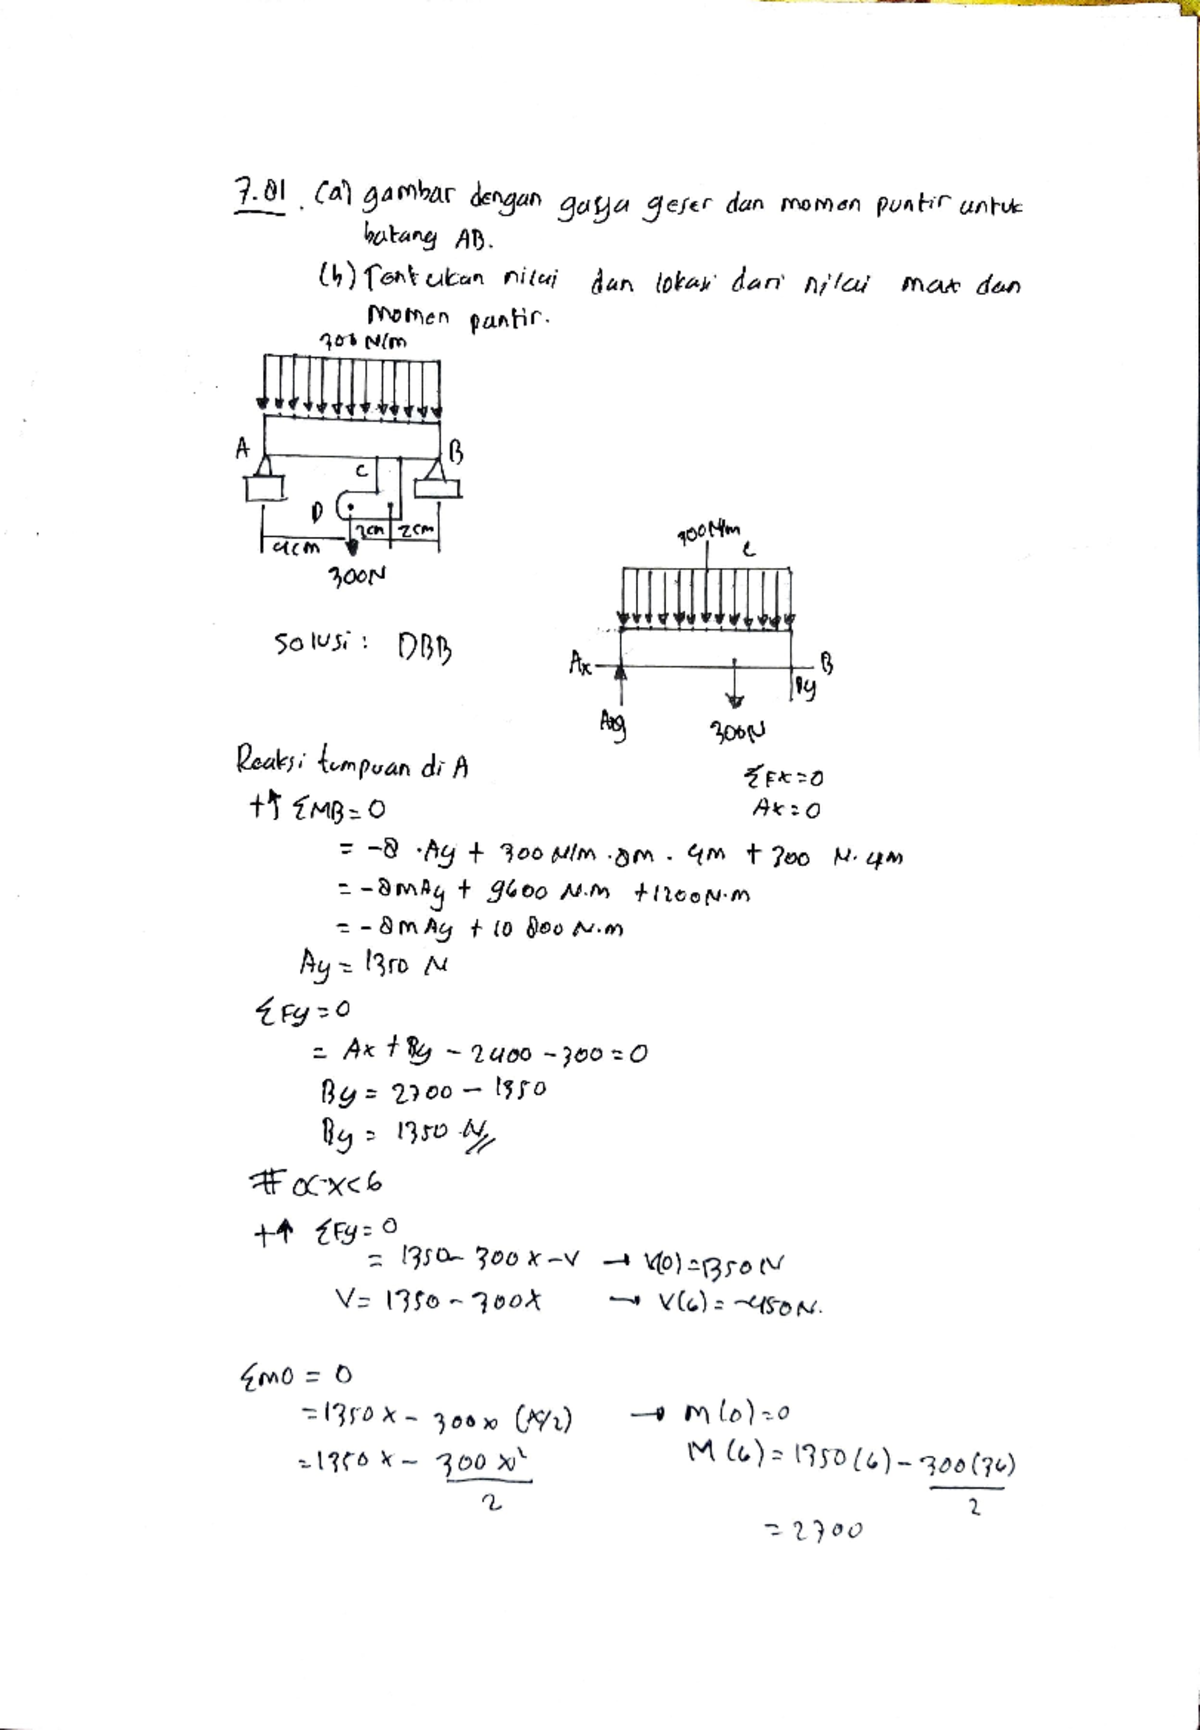 7.81. (a) gambar dengan gaya geser dan momen puntir untuk
batang AB.
(b) Tentukan nilai dan lokasi dari nilai max dan
momen puntir.
300 N/m
A
B
C
D
4cm
2cm
2cm
300N
300N/m
C
Solusi : DBB
Ax
B
By
Ay
300N
Reaksi tumpuan di A
ΣFx=0
+↑ ΣMB=0
Ax=0
= -8 . Ay + 300 N/m . 8m . 4m + 300 N. 4m
= -8mAy + 9600 N.m + 1200N.m
= -8mAy + 10 800 N.m
Ay = 1350 N
ΣFy=0
= Ax + By - 2400 - 300 = 0
By = 2700 - 1350
By = 1350 N//
# 0<x<6
+↑ ΣFy=0
= 1350 - 300x - V → V(0)=1350N
V= 1350 - 300x → V(6) = -450N.
ΣMO = 0
= 1350x - 300x (x/2) → M(0)=0
= 1350x - 300x²/2 M(6) = 1350(6) - 300(36)/2
= 2700